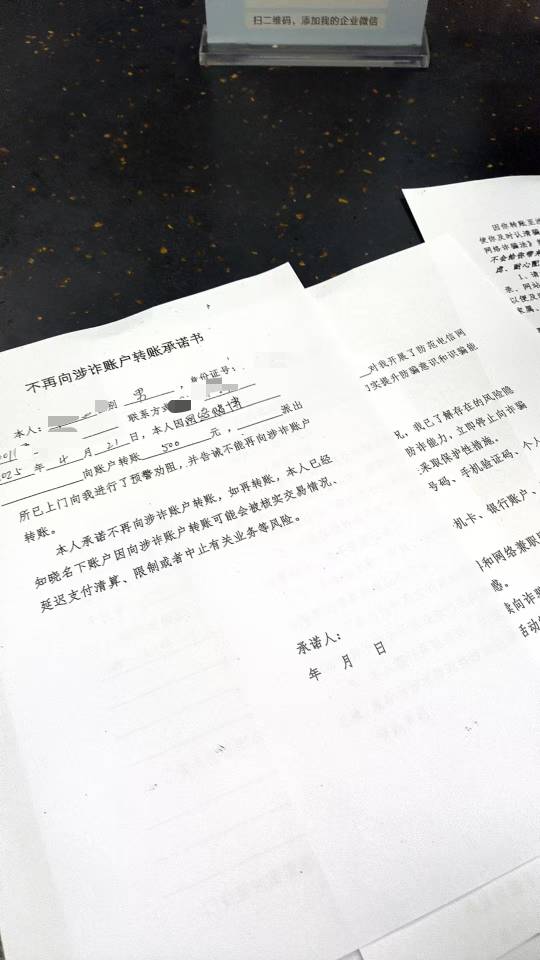 扫二维码，添加我的企业微信
不再向涉诈账户转账承诺书
本人：
别 男 ，身份证号：
联系方
2025 年 4 月 21 日，本人因网络赌博
向账户转账 500 元， 派出
所已上门向我进行了预警劝阻，并告诫不能再向涉诈账户
转账。
本人承诺不再向涉诈账户转账，如再转账，本人已经
知晓名下账户因向涉诈账户转账可能会被核实交易情况、
延迟支付清算、限制或者中止有关业务等风险。
承诺人：
年 月 日
对我开展了防范电信网
实提升防骗意识和识骗能
况，我已了解存在的风险隐
防诈能力，立即停止向诈骗
采取保护性措施。
号码、手机验证码、个人
机卡、银行账户、
和网络兼职
惑。
向诈骗
活动
因你转账至涉
使你及时认清骗
网络诈骗法》
不会给你带来
虑、耐心配
1、请
录、网站
以便及时
家属、